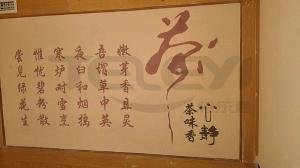 茶
心静
茶味香
嫩芽香且灵
吾谓草中英
夜臼和烟捣
寒炉对雪烹
惟忧碧粉散
尝见绿花生